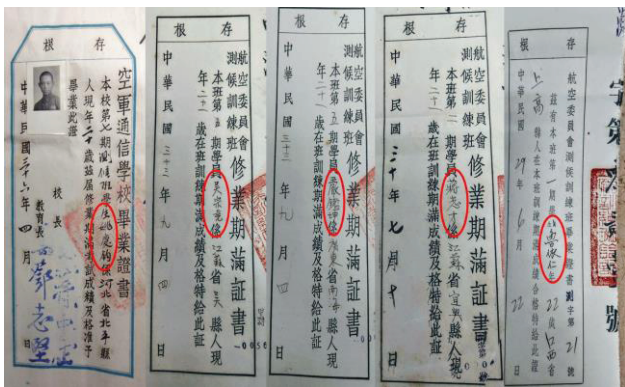 存根
空軍通信學校畢業證書
本校第七期測候班學生姚慶鈞係河北省北平縣
人現年二十歲在屆修業期滿考試成績及格准予
畢業此證
校長
教育長 鄧志堅
中華民國三十六年四月 日
存根
航空委員會
測候訓練班
修業期滿証書
本班第五期學員吳宗堯係江蘇省吳縣人現
年二十一歲在班訓練期滿成績及格特給此証
中華民國三十三年九月四日
存根
航空委員會
測候訓練班
修業期滿証書
本班第五期學員係廣東省縣人現
年二十一歲在班訓練期滿成績及格特給此証
中華民國三十三年九月四日
存根
航空委員會
測候訓練班
修業期滿証書
本班第二期學員蔣志才係江蘇省宜興縣人現
年二十一歲在班訓練期滿成績及格特給此証
中華民國三十年七月十日
存根
航空委員會測候訓練班畢業證書測字第21號
茲有本班第期學員魯依仁年22歲江西省
上高縣人在本班訓練期滿成績合格特給此證
中華民國29年6月22日
字第
號